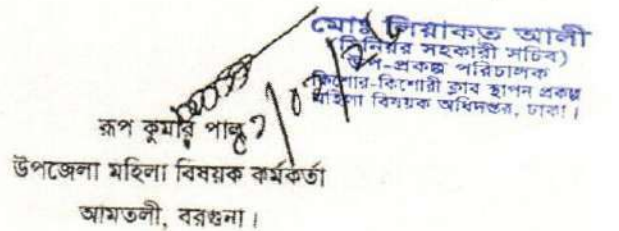 মোঃ লিয়াকত আলী
(সিনিয়র সহকারী সচিব)
উপ-প্রকল্প পরিচালক
কিশোর-কিশোরী ক্লাব স্থাপন প্রকল্প
মহিলা বিষয়ক অধিদপ্তর, ঢাকা।
রূপ কুমার পাল
উপজেলা মহিলা বিষয়ক কর্মকর্তা
আমতলী, বরগুনা।